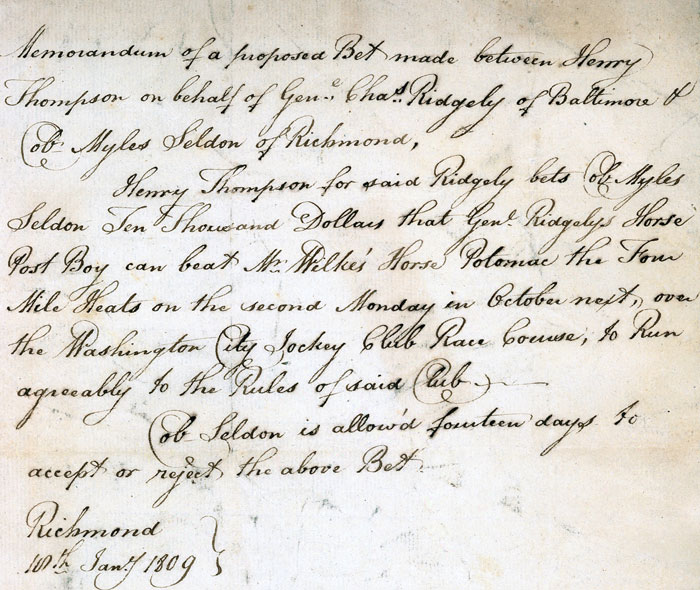 Memorandum of a proposed Bet made between Henry
Thompson on behalf of Genl. Chas. Ridgely of Baltimore &
Col. Myles Seldon of Richmond,
Henry Thompson for said Ridgely bets Col. Myles
Seldon Ten Thousand Dollars that Genl. Ridgelys Horse
Post Boy can beat Mr. Wilkes's Horse Potomac the Four
Mile Heats on the second Monday in October next, over
the Washington City Jockey Club Race Course, to Run
agreeably to the Rules of said Club
Col. Seldon is allow'd fourteen days to
accept or reject the above Bet
Richmond
Jany 1809